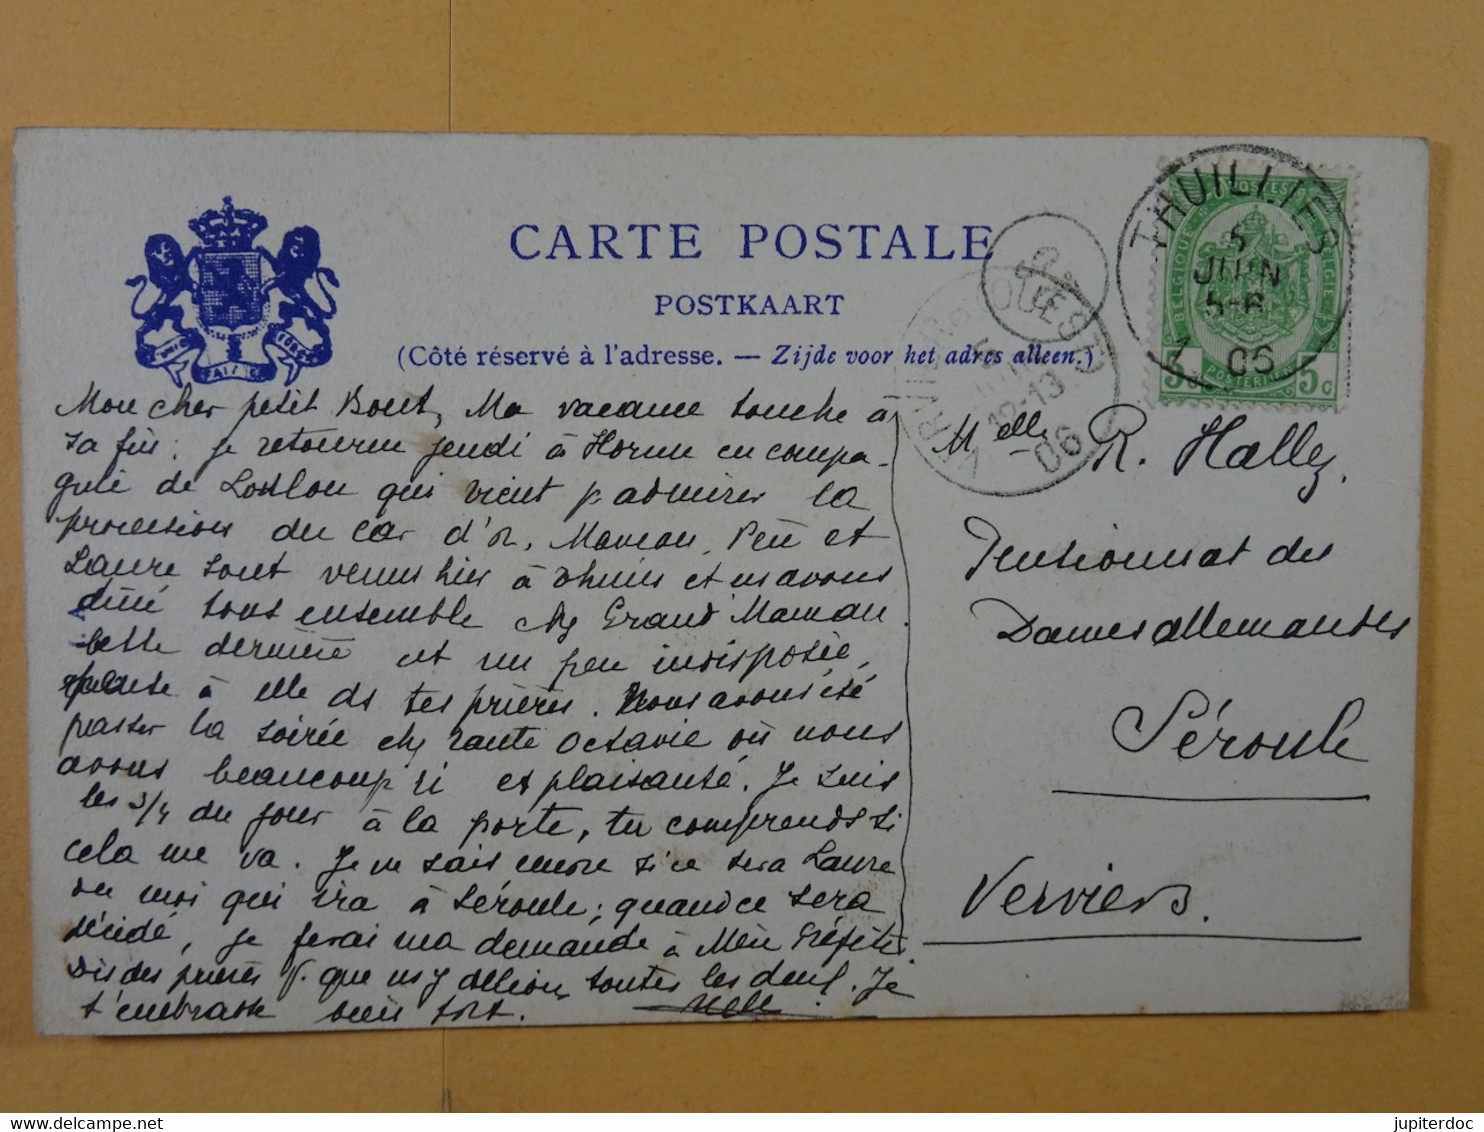 CARTE POSTALE
POSTKAART
(Côté réservé à l'adresse. — Zijde voor het adres alleen.)
THUILLIES
5
JUIN
5-6
06
BELGIQUE
BELGIE
5c
5c
OUEST
12-13
06
Mon cher petit Bout, Ma vacance touche à
sa fin; je retourne jeudi à Hornu en compa-
gnie de qui vient p. admirer la
procession du car d'or. Maman, et
Laure sont venus hier à Thuin et ns avons
dîné tous ensemble chez Grand'Maman.
Cette dernière est un peu indisposée,
pense à elle ds tes prières. Nous avons été
passer la soirée chez tante Octavie où nous
avons beaucoup ri et plaisanté. Je suis
les 3/4 du jour à la porte, tu comprends si
cela me va. Je ne sais encore si ce sera Laure
ou moi qui ira à Séroule; quand ce sera
décidé, je ferai ma demande à Mère Préfète.
Dis des prières p. que ns y allions toutes les deux. Je
t'embrasse bien fort.
Melle R. Hallez.
Pensionnat des
Dames allemandes
Séroule
Verviers.
jupiterdoc